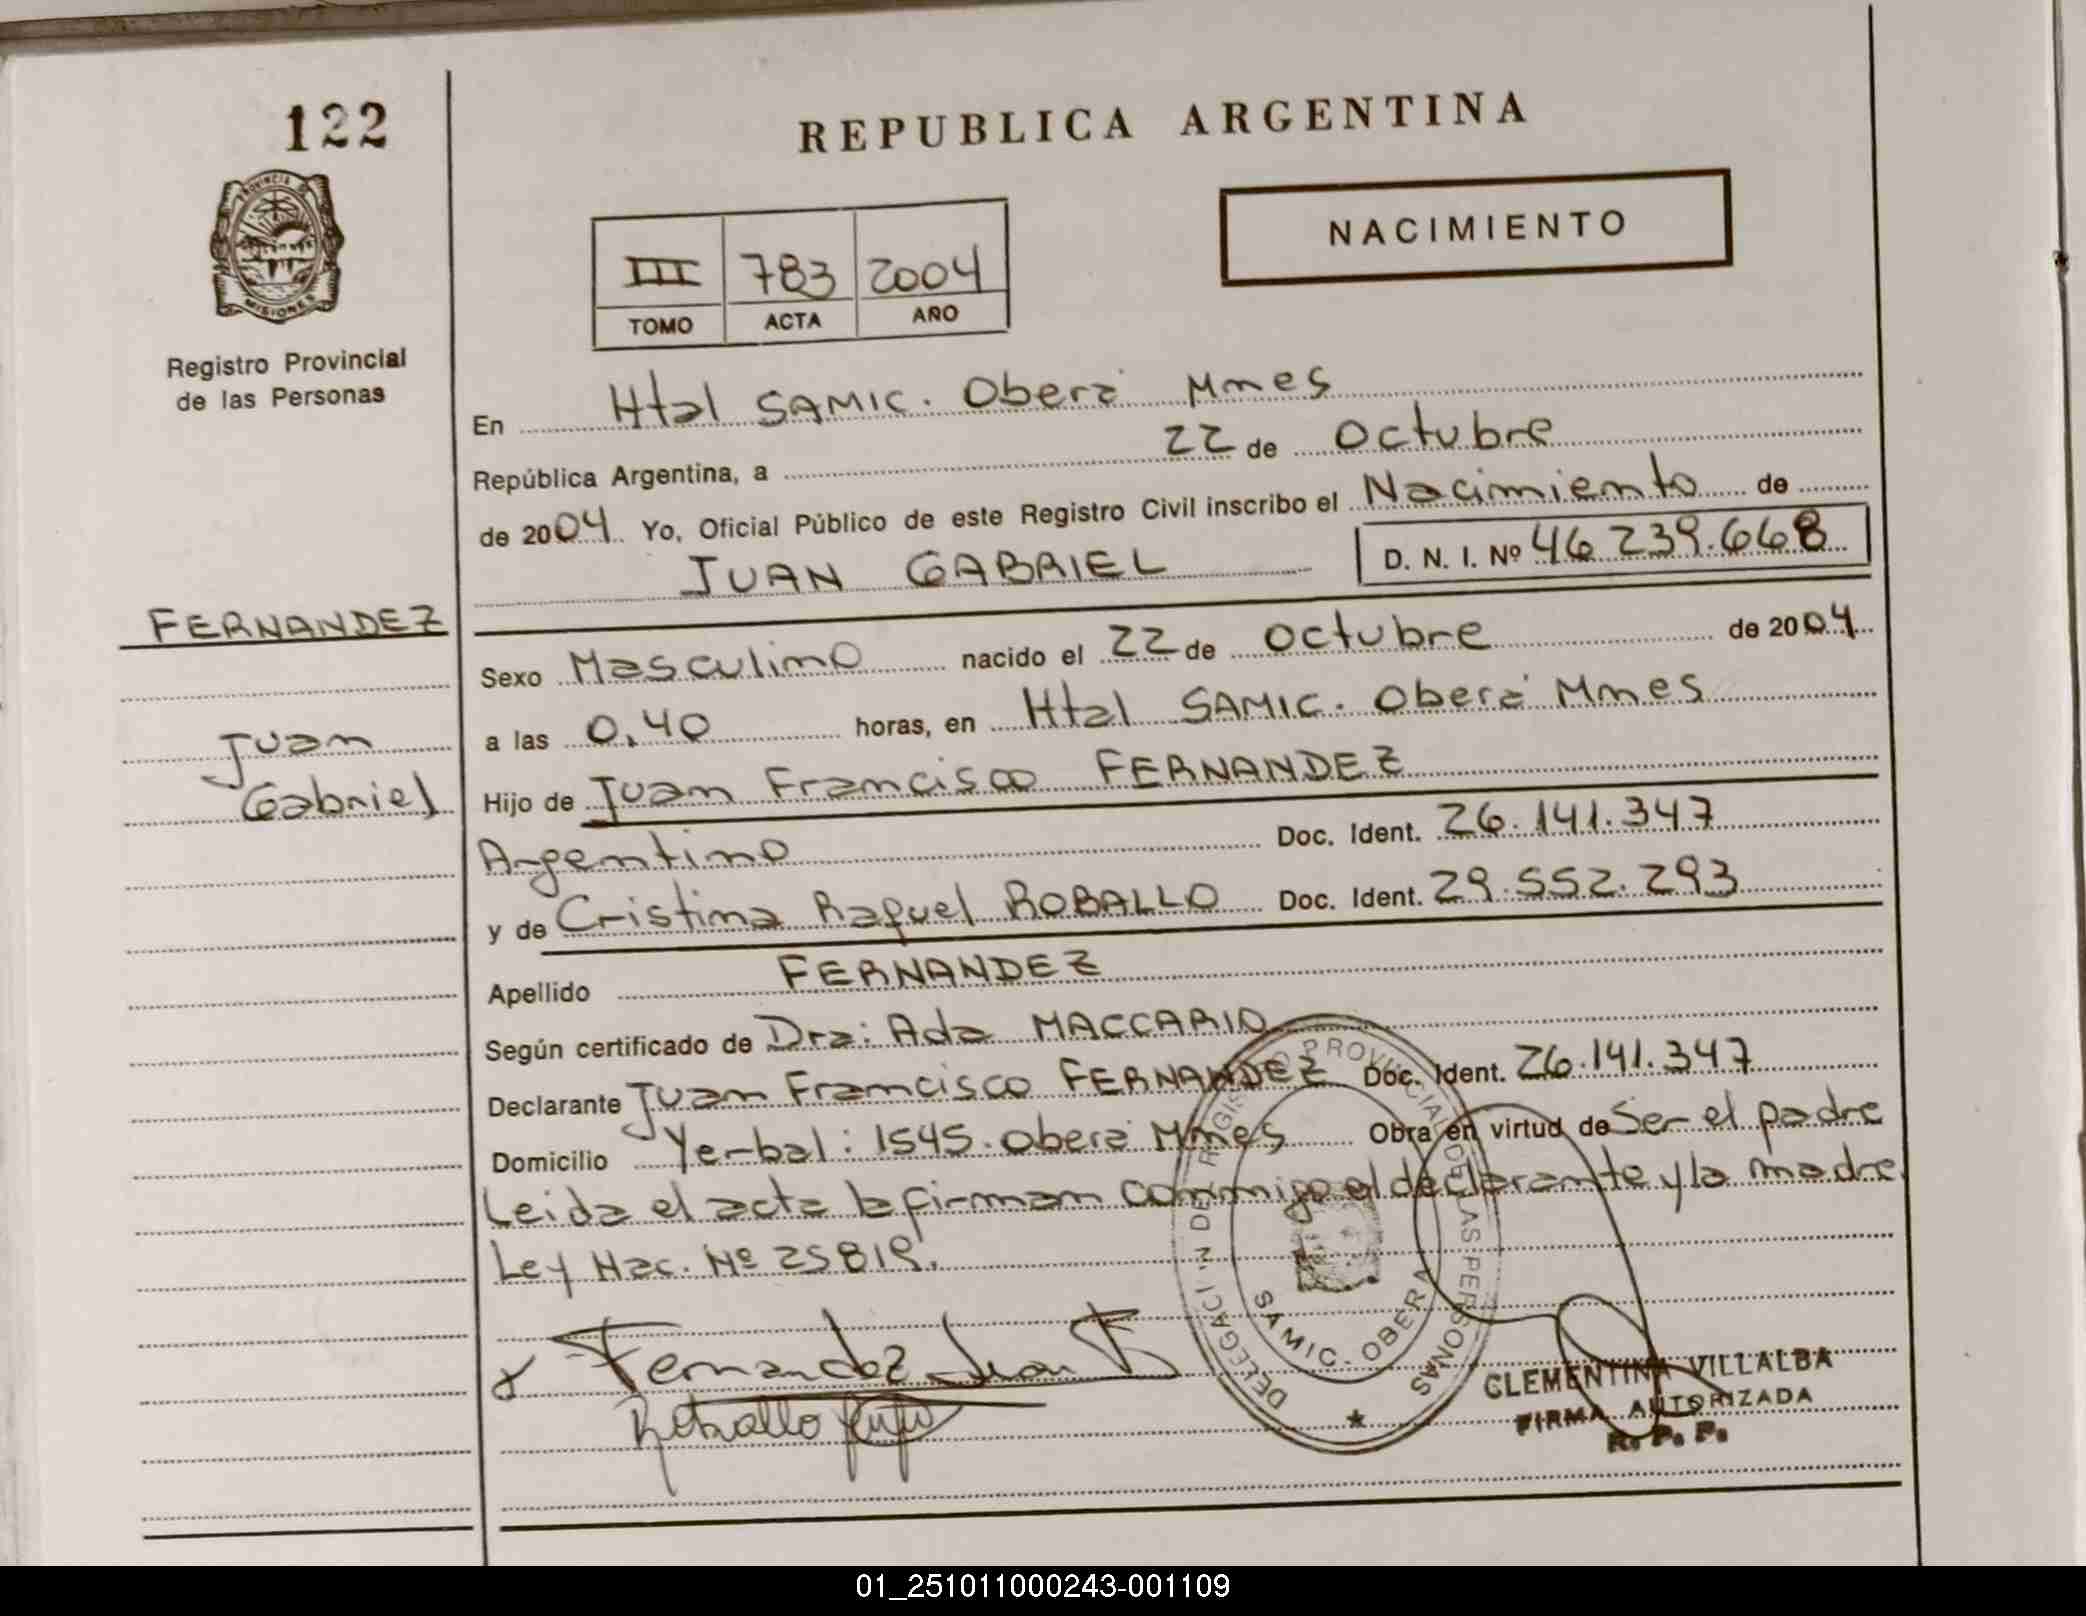 122
REPUBLICA ARGENTINA
NACIMIENTO
PROVINCIA DE
MISIONES
III 783 2004
TOMO ACTA AÑO
Registro Provincial
de las Personas
En Htal SAMIC. Oberá Mnes
República Argentina, a 22 de Octubre
de 2004 Yo, Oficial Público de este Registro Civil inscribo el Nacimiento de
JUAN GABRIEL D. N. I. Nº 46 239.668
FERNANDEZ
Juan
Gabriel
Sexo Masculino nacido el 22 de Octubre de 2004
a las 0,40 horas, en Htal SAMIC. Oberá Mnes
Hijo de Juan Francisco FERNANDEZ
Argentino Doc. Ident. 26.141.347
y de Cristina Raquel ROBALLO Doc. Ident. 29.552.293
Apellido FERNANDEZ
Según certificado de Dra: Ada MACCARIO
Declarante Juan Francisco FERNANDEZ Doc. Ident. 26.141.347
Domicilio Yerbal: 1545. Oberá Mnes Obra en virtud de Ser el padre
Leida el acta la firman conmigo el declarante y la madre.
Ley Nac. Nº 25819.
DELEGACI N DE REGISTRO PROVINCIAL DE LAS PERSONAS
SAMIC - OBERA
Fernandez Juan F
Roballo
CLEMENTINA VILLALBA
FIRMA AUTORIZADA
R. P. P.
01_251011000243-001109